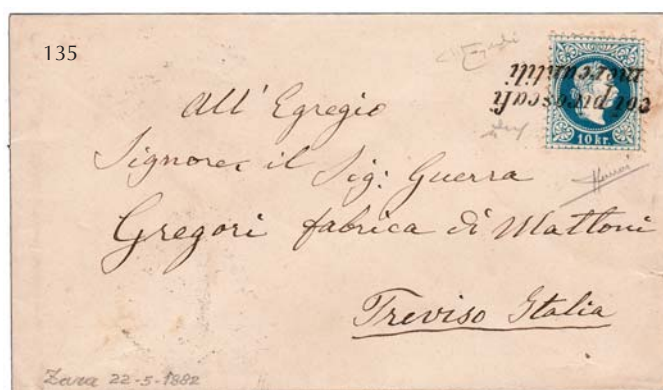 135
coi piroscafi
mercantili
10 kr.
All' Egregio
Signore, il Sig: Guerra
Gregori fabrica di Mattoni
Treviso Italia
Zara 22-5-1882